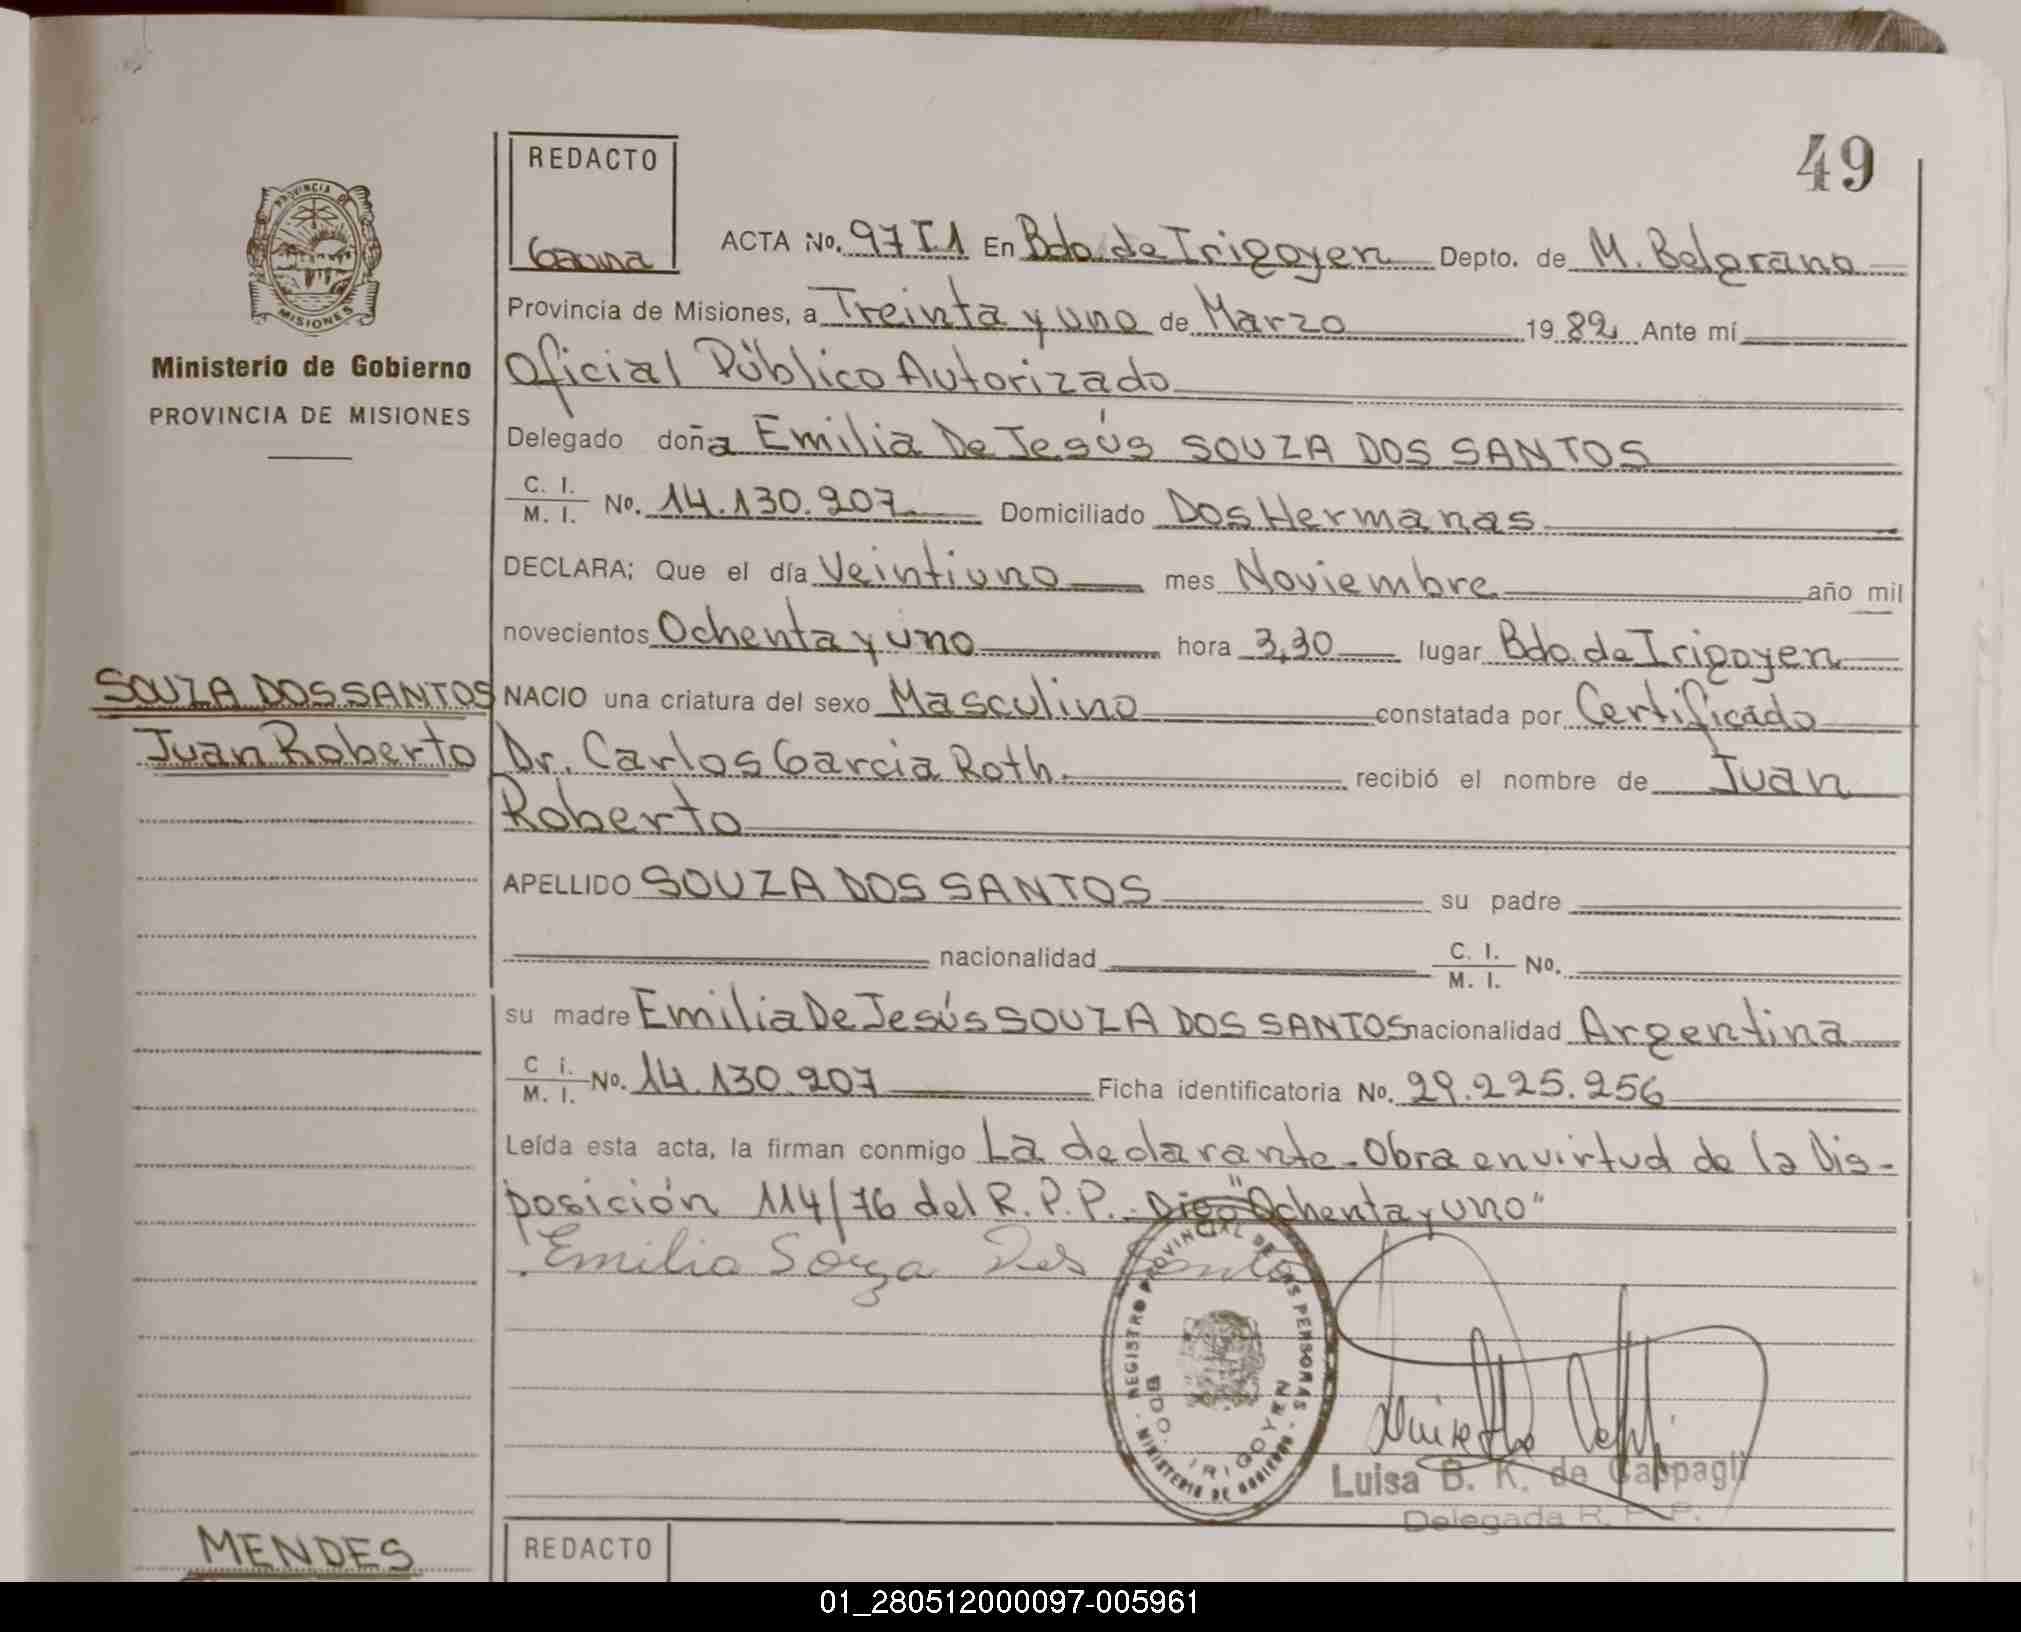 49
REDACTO
Gauna
PROVINCIA DE
MISIONES
Ministerio de Gobierno
PROVINCIA DE MISIONES
ACTA No. 97 T.1 En Bdo. de Irigoyen Depto. de M. Belgrano
Provincia de Misiones, a Treinta y uno de Marzo 1982 Ante mí
Oficial Público Autorizado
Delegado doña Emilia De Jesús SOUZA DOS SANTOS
C. I.
M. I. No. 14.130.907 Domiciliado Dos Hermanas
DECLARA; Que el día Veintiuno mes Noviembre año mil
novecientos Ochenta y uno hora 3,30 lugar Bdo. de Irigoyen
SOUZA DOS SANTOS
Juan Roberto
NACIO una criatura del sexo Masculino constatada por Certificado
Dr. Carlos Garcia Roth. recibió el nombre de Juan
Roberto
APELLIDO SOUZA DOS SANTOS su padre
nacionalidad C. I.
M. I. No.
su madre Emilia De Jesús SOUZA DOS SANTOS nacionalidad Argentina
C i.
M. I. No. 14.130.907 Ficha identificatoria No. 29.225.256
Leída esta acta, la firman conmigo La declarante. Obra en virtud de la Dis-
posición 114/76 del R.P.P. Digo "Ochenta y uno"
Emilia Soyza Dos Santos
REGISTRO PROVINCIAL DE LAS PERSONAS
MINISTERIO DE GOBIERNO
BDO. IRIGOYEN
Luisa B. K. de Cappagli
Delegada R. P. P.
MENDES
REDACTO
01_280512000097-005961